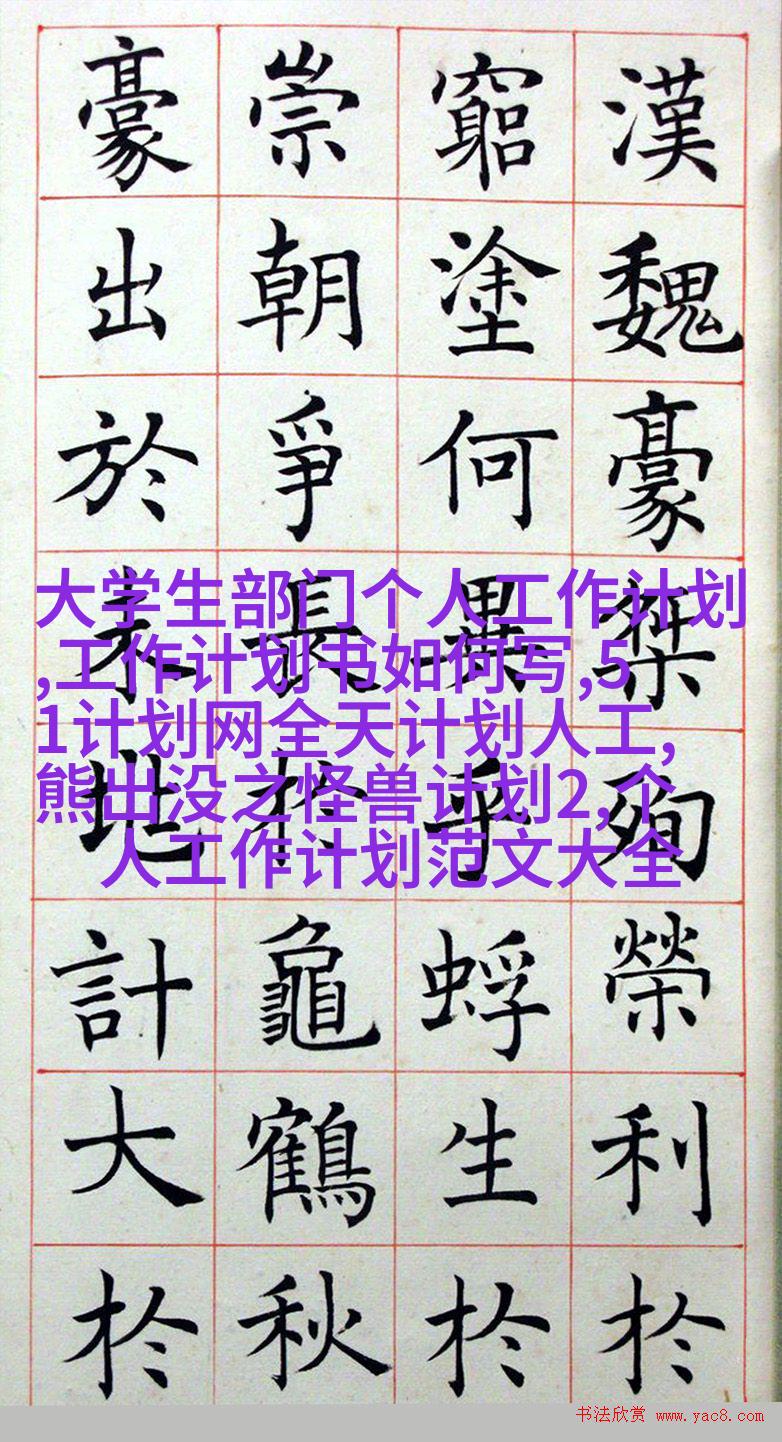 漢魏豪桀殉榮利扵
窮塗何異乎蜉生扵
崇朝爭長扵龜鶴秋
豪出於地計大扵
大学生部门个人工作计划
,工作计划书如何写,5
1计划网全天计划人工,
熊出没之怪兽计划2,个
人工作计划范文大全
书法欣赏 www.yac8.com